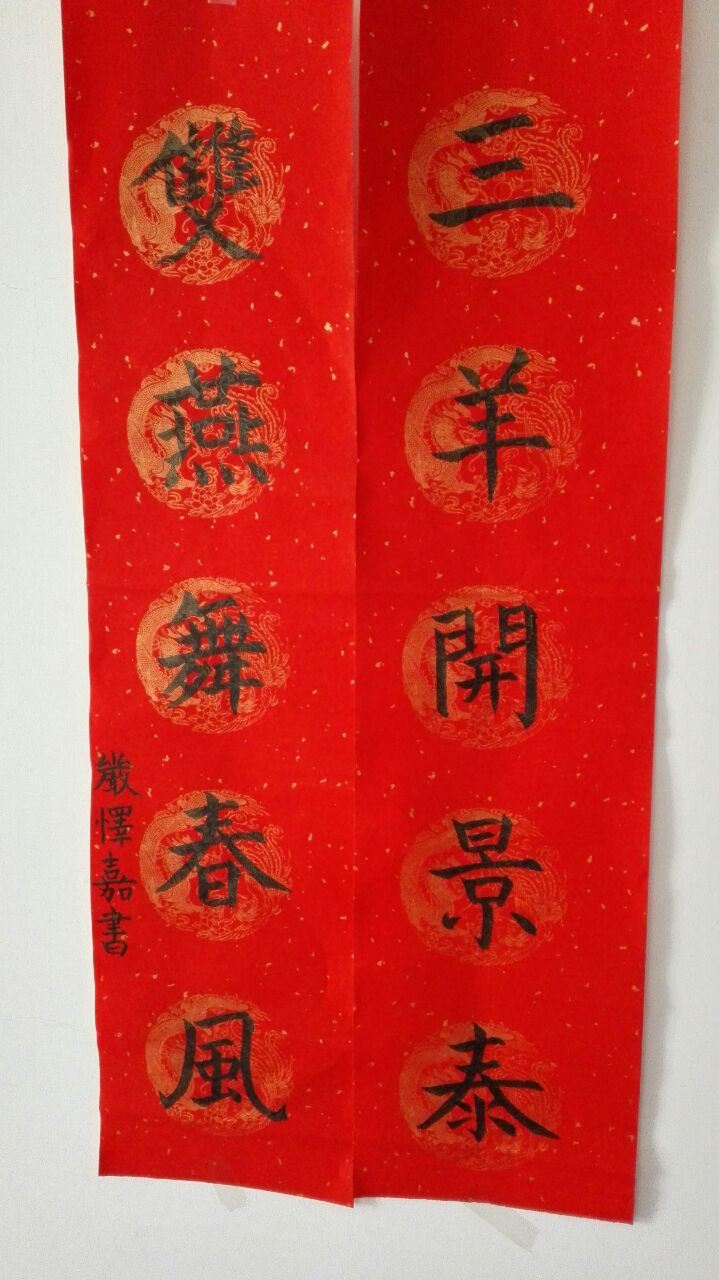 三羊開景泰
雙燕舞春風
嚴懌嘉書